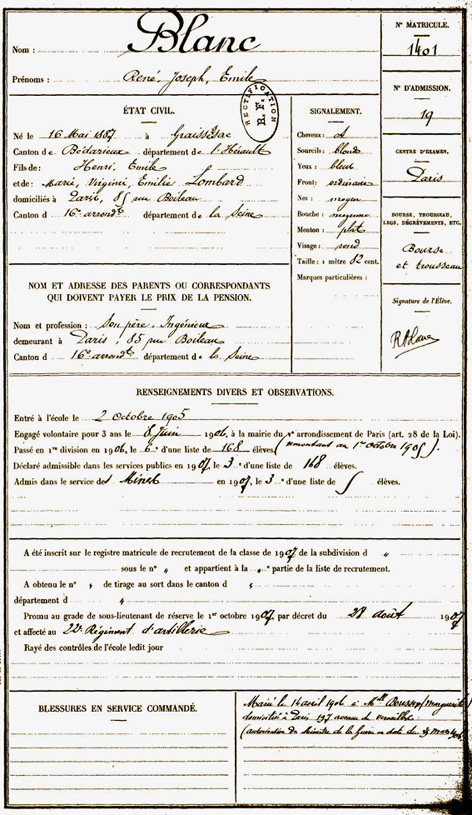 Nom : Blanc
Prénoms : René, Joseph, Emile
N° MATRICULE.
1401
N° D'ADMISSION.
19
CENTRE D'EXAMEN.
Paris
BOURSE, TROUSSEAU, LEGS, DÉGRÈVEMENTS, ETC.
Bourse
et trousseau
Signature de l'Élève.
RECTIFICATION R.F.
ÉTAT CIVIL.
Né le 16 Mai 1887 à Graissesac
Canton de Bédarieux département de l'Hérault
Fils de : Henri, Emile
et de : Marie, Virginie, Emilie Lombard
domiciliés à Paris, 85 rue Boileau
Canton d 16e arrondt département de la Seine
SIGNALEMENT.
Cheveux : 
Sourcils : blonds
Yeux : bleus
Front : ordinaire
Nez : moyen
Bouche : moyenne
Menton : plat
Visage : rond
Taille : 1 mètre 82 cent.
Marques particulières :
NOM ET ADRESSE DES PARENTS OU CORRESPONDANTS
QUI DOIVENT PAYER LE PRIX DE LA PENSION.
Nom et profession : Son père, Ingénieur
demeurant à Paris 85 rue Boileau
Canton d 16e arrondt département de la Seine
RENSEIGNEMENTS DIVERS ET OBSERVATIONS.
Entré à l'école le 2 octobre 1905
Engagé volontaire pour 3 ans le 8 Juin 1906, à la mairie du Ve arrondissement de Paris (art. 28 de la Loi).
Passé en 1re division en 1906, le 6e d'une liste de 168 élèves (remontant au 1er octobre 1905).
Déclaré admissible dans les services publics en 1907, le 3e d'une liste de 168 élèves.
Admis dans le service des Mines en 1907, le 3e d'une liste de 5 élèves.
A été inscrit sur le registre matricule de recrutement de la classe de 1907 de la subdivision d "
sous le n° " et appartient à la " partie de la liste de recrutement.
A obtenu le n° " de tirage au sort dans le canton d "
département d "
Promu au grade de sous-lieutenant de réserve le 1er octobre 1907, par décret du 28 août 1907
et affecté au 22e Régiment d'artillerie
Rayé des contrôles de l'école ledit jour
BLESSURES EN SERVICE COMMANDÉ.
Marié le 14 avril 1906 à Mlle (marguerite)
domiciliée à Paris 197 avenue de
(autorisation du Ministre de la Guerre en date du mars 1906)